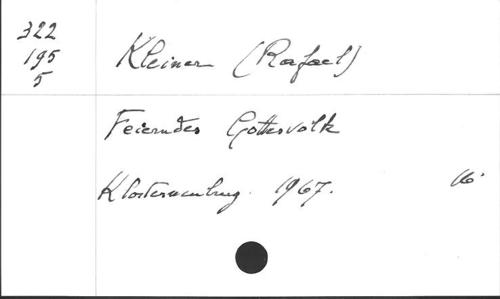 322
195
5
Kleiner (Rafael)
Feierndes Gottesvolk
Klosterneuburg. 1967. 16.